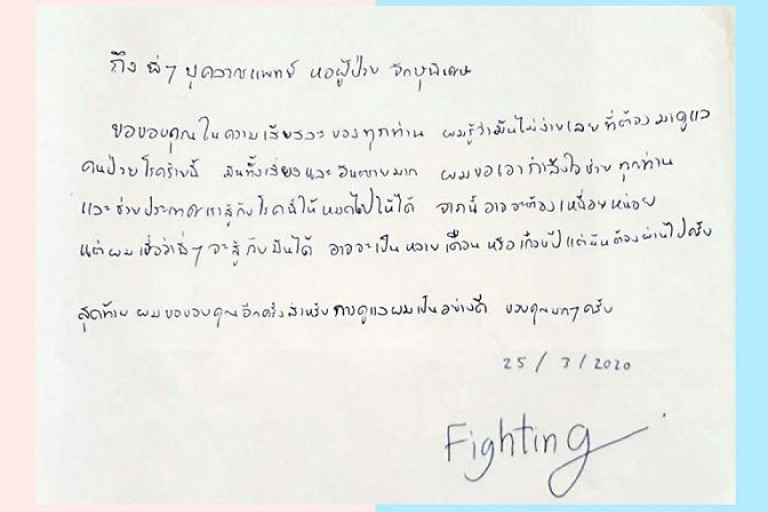 ถึง พี่ๆ บุคลากรแพทย์ หอผู้ป่วย จักษุพิเศษ
ขอขอบคุณในความเสียสละของทุกท่าน ผมรู้ว่ามันไม่ง่ายเลยที่ต้องมาดูแล
คนป่วยโรคร้ายนี้ มันทั้งเสี่ยงและอันตรายมาก ผมขอเอากำลังใจช่วยทุกท่าน
และช่วยประเทศเราสู้กับโรคนี้ให้หมดไปให้ได้ จากนี้อาจจะต้องเหนื่อยหน่อย
แต่ผมเชื่อว่าพี่ๆจะสู้กับมันได้ อาจจะเป็นหลายเดือนหรือเกือบปีแต่มันต้องผ่านไปครับ
สุดท้าย ผมขอขอบคุณอีกครั้งสำหรับการดูแลผมเป็นอย่างดี ขอบคุณมากๆครับ
25 / 3 / 2020
Fighting